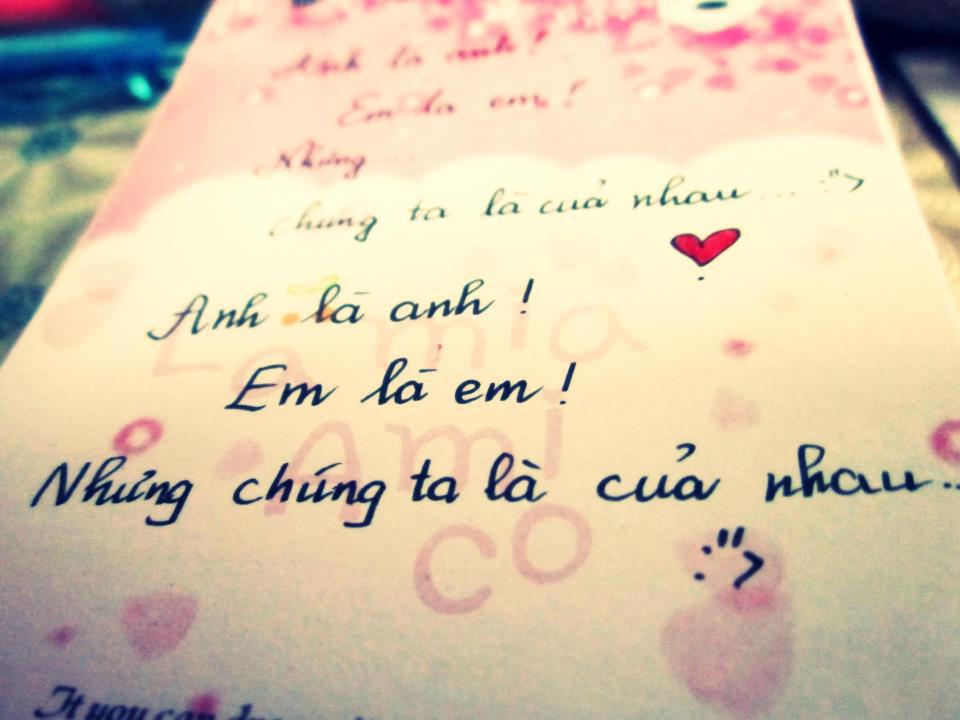 Anh là anh!
Em là em!
Nhưng...
chúng ta là của nhau... :">
Anh là anh!
Em là em!
Nhưng chúng ta là của nhau..
:">
La mia
Ami
co
It you can